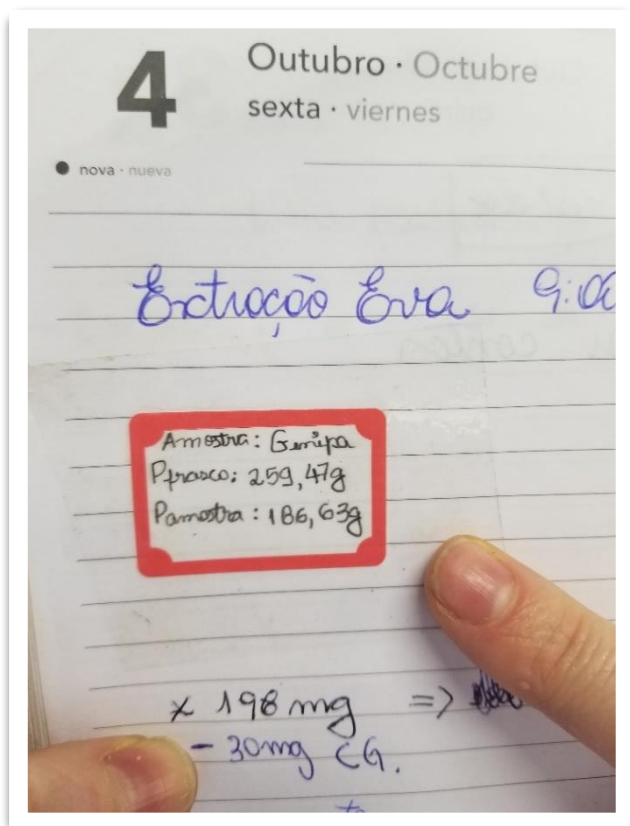 4
Outubro · Octubre
sexta · viernes
nova · nueva
Extração Eva 9:00
Amostra: Genipa
Pfrasco: 259,47g
Pamostra: 186,63g
x 198 mg =>
- 30mg CG.